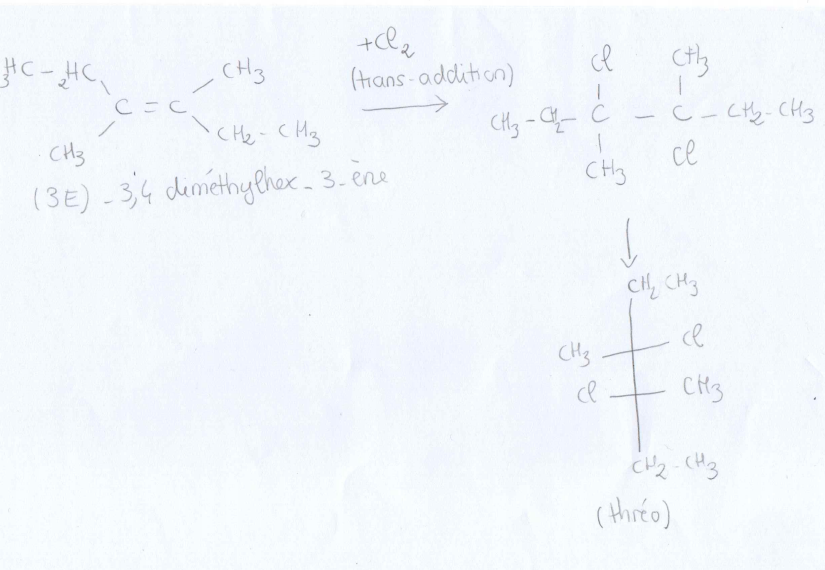 H3C-2HC CH3
C = C
CH3 CH2-CH3
(3E)-3,4 diméthylhex-3-ène
+Cl2
(trans-addition)
Cl CH3
CH3-CH2-C - C-CH2-CH3
CH3 Cl
CH2CH3
CH3 Cl
Cl CH3
CH2-CH3
(thréo)